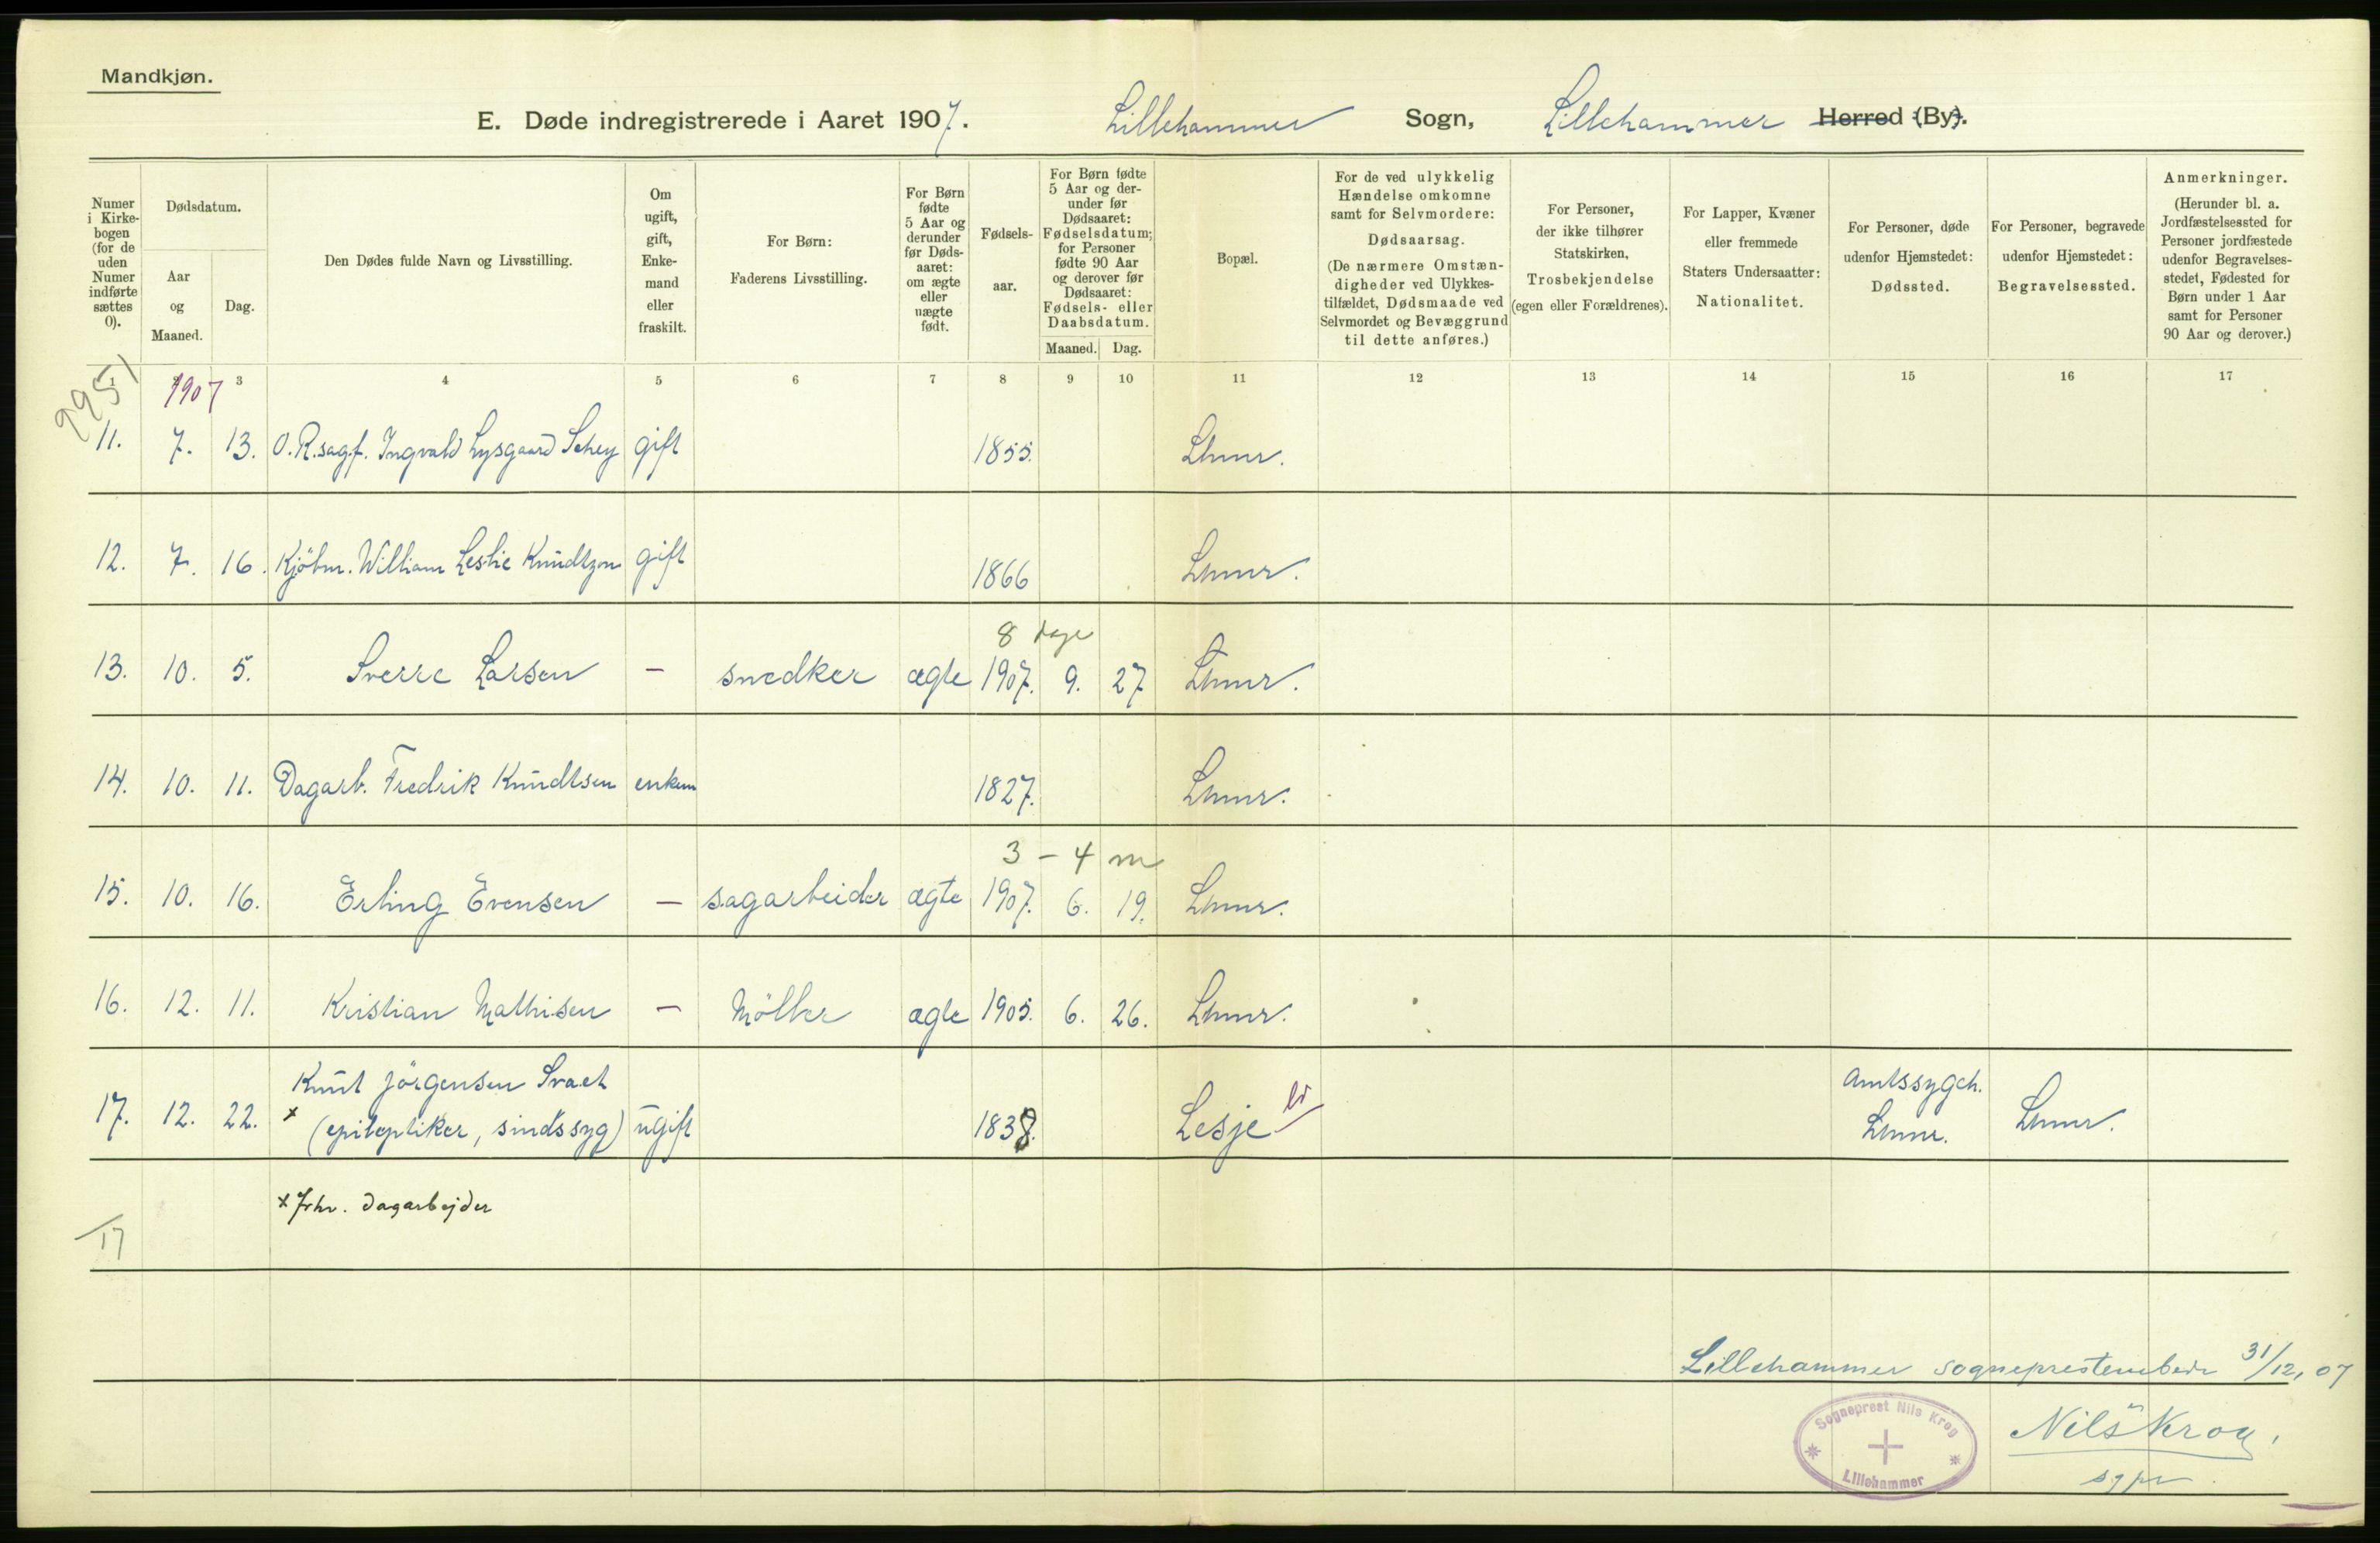 Mandkjøn.
E. Døde indregistrerede i Aaret 1907. Lillehammer Sogn, Lillehammer Herred (By).
Numer i Kirkebogen (for de uden Numer indførte sættes 0).
Dødsdatum.
Aar og Maaned.
Dag.
Den Dødes fulde Navn og Livsstilling.
Om ugift, gift, Enkemand eller fraskilt.
For Børn: Faderens Livsstilling.
For Børn fødte 5 Aar og derunder før Dødsaaret: om ægte eller uægte født.
Fødselsaar.
For Børn fødte 5 Aar og derunder før Dødsaaret: Fødselsdatum; for Personer fødte 90 Aar og derover før Dødsaaret: Fødsels- eller Daabsdatum.
Maaned. Dag.
Bopæl.
For de ved ulykkelig Hændelse omkomne samt for Selvmordere: Dødsaarsag. (De nærmere Omstændigheder ved Ulykkestilfældet, Dødsmaade ved Selvmordet og Bevæggrund til dette anføres.)
For Personer, der ikke tilhører Statskirken, Trosbekjendelse (egen eller Forældrenes).
For Lapper, Kvæner eller fremmede Staters Undersaatter: Nationalitet.
For Personer, døde udenfor Hjemstedet: Dødssted.
For Personer, begravede udenfor Hjemstedet: Begravelsessted.
Anmerkninger. (Herunder bl. a. Jordfæstelsessted for Personer jordfæstede udenfor Begravelsesstedet, Fødested for Børn under 1 Aar samt for Personer 90 Aar og derover.)
1 2 3 4 5 6 7 8 9 10 11 12 13 14 15 16 17
9951
1907
11. 7. 13. O.R.sagf. Ingvald Lysgaard Schey gift 1855. Lhmr.
12. 7. 16. Kjöbm. William Leslie Knudtzon gift 1866 Lhmr.
8 dage
13. 10. 5. Sverre Larsen — snedker ægte 1907. 9. 27 Lhmr.
14. 10. 11. Dagarb. Fredrik Knudtsen enkem 1827. Lhmr.
3 - 4 m
15. 10. 16. Erling Evensen — sagarbeider ægte 1907. 6. 19. Lhmr.
16. 12. 11. Kristian Mathisen — Möller ægte 1905. 6. 26. Lhmr.
Knut Jörgensen Svaet amtssygeh.
17. 12. 22. x (epileptiker, sindssyg) ugift 1838. Lesje Lhmr. Lhmr.
x Frhv. dagarbejder
17
Lillehammer sogneprestembede 31/12, 07
Sogneprest Nils Krog
Lillehammer
Nils Krog,
sgpr.